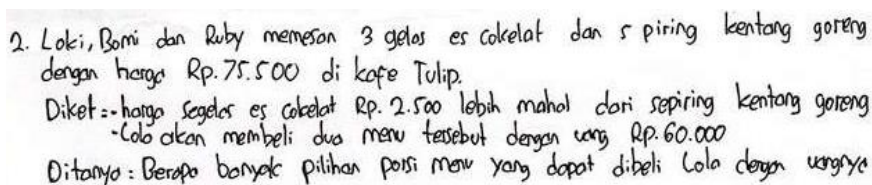 2. Loki, Bomi dan Ruby memesan 3 gelas es cokelat dan 5 piring kentang goreng
dengan harga Rp. 75.500 di kafe Tulip.
Diket :- harga segelas es cokelat Rp. 2.500 lebih mahal dari sepiring kentang goreng
- Lola akan membeli dua menu tersebut dengan uang Rp. 60.000
Ditanya : Berapa banyak pilihan porsi menu yang dapat dibeli Lola dengan uangnya